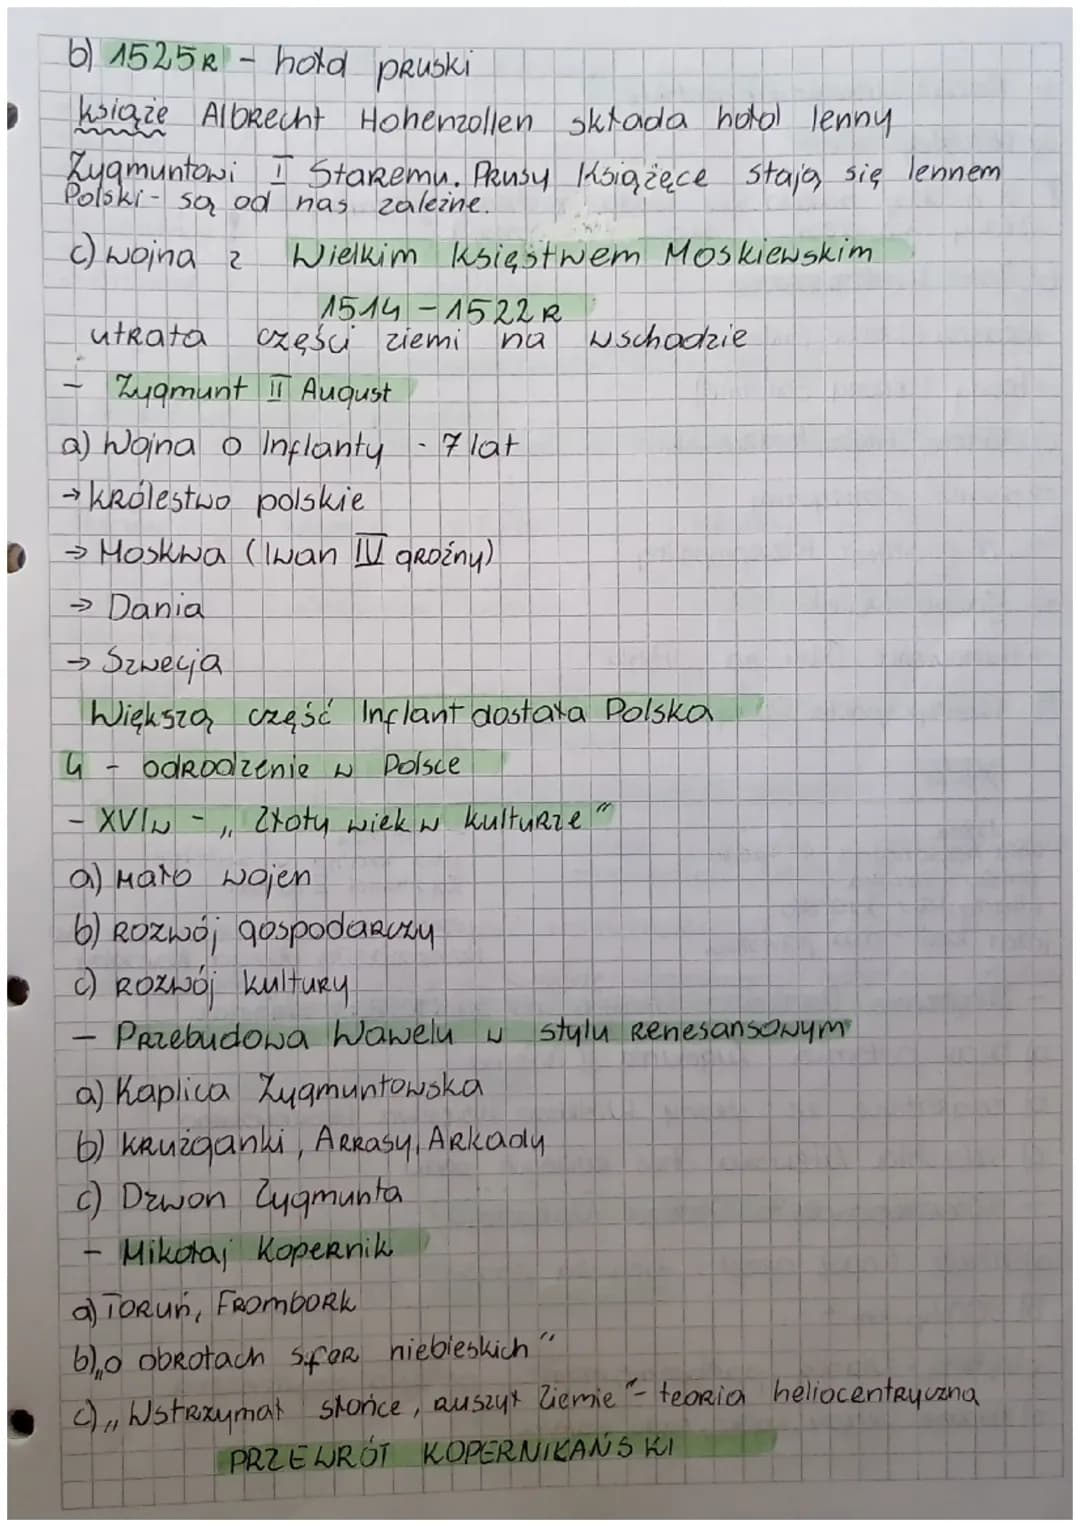 b) 1525R - hołd pruski
książe Albrecht Hohenzollen składa hołd lenny
Zygmuntowi I Staremu. Prusy Książęce stają się lennem
Polski - są od nas zależne.
c) wojna z Wielkim Księstwem Moskiewskim
1514 - 1522 R
utrata części ziemi na wschodzie
- Zygmunt II August
a) Wojna o Inflanty - 7 lat
→ królestwo polskie
→ Moskwa (Iwan IV groźny)
→ Dania
→ Szwecja
Większą część Inflant dostała Polska
4 - odrodzenie w Polsce
- XVI w - „Złoty wiek w kulturze”
a) Mało wojen
b) Rozwój gospodarczy
c) Rozwój kultury
- Przebudowa Wawelu w stylu renesansowym
a) Kaplica Zygmuntowska
b) krużganki, Arrasy, Arkady
c) Dzwon Zygmunta
- Mikołaj Kopernik
a) Toruń, Frombork
b) „o obrotach sfer niebieskich”
c) „Wstrzymał słońce, ruszył Ziemie” - teoria heliocentryczna
PRZEWRÓT KOPERNIKAŃSKI